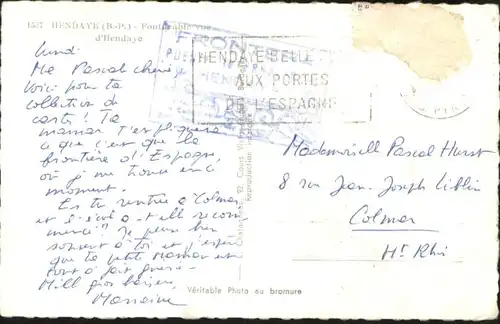 1527 HENDAYE (B.-P.) - Fontarabie vue
d'Hendaye
FRONT
HENDAYE-BELLE
AUX PORTES
DE L'ESPAGNE
Lundi
Ma Pascal chérie
Voici pour ta
collection de
carte! Ta
maman t'expliquera
ce que c'est que la
frontière d'Espagne,
où je me trouve en ce
moment.
Es tu rentrée à Colmar
et l'école a-t-elle recom
mencé? Je pense bien
souvent à toi et j'espère
que ta petite maman est
tout à fait guérie.
Mille gros baisers,
Mademoiselle Pascal Hurst
8 rue Jean-Joseph
Colmar
Ht Rhin
Véritable Photo au bromure